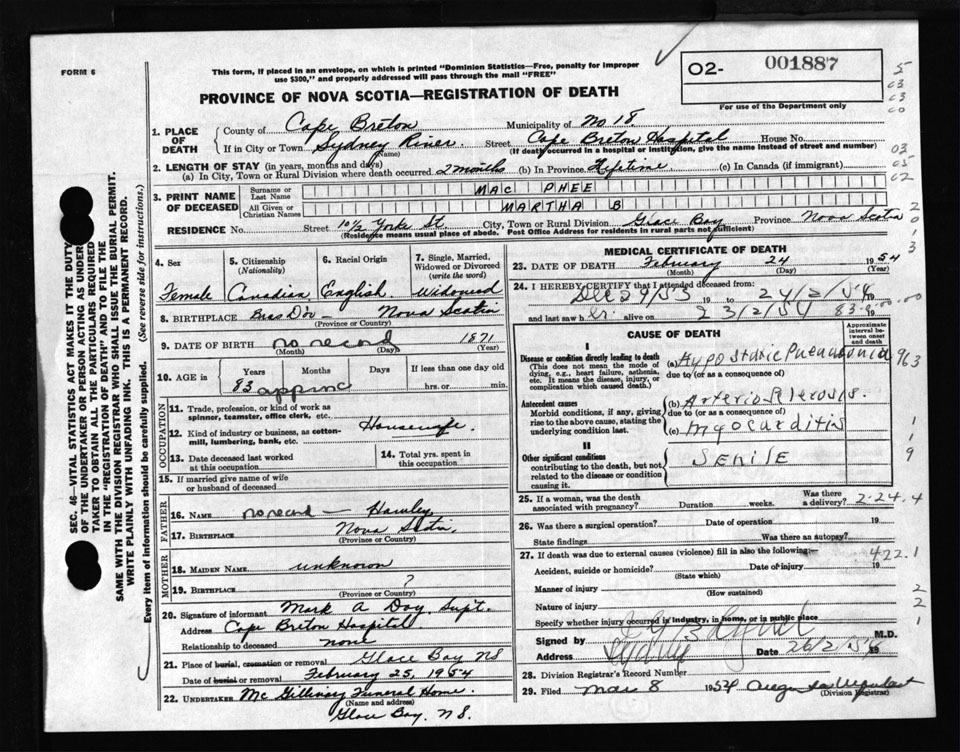 FORM 6
This form, if placed in an envelope, on which is printed "Dominion Statistics—Free, penalty for improper
use $300," and properly addressed will pass through the mail "FREE"
PROVINCE OF NOVA SCOTIA—REGISTRATION OF DEATH
02- 001887
For use of the Department only
SEC. 46—VITAL STATISTICS ACT MAKES IT THE DUTY
OF THE UNDERTAKER OR PERSON ACTING AS UNDER-
TAKER TO OBTAIN ALL THE PARTICULARS REQUIRED
IN THE "REGISTRATION OF DEATH" AND TO FILE THE
SAME WITH THE DIVISION REGISTRAR WHO SHALL ISSUE THE BURIAL PERMIT.
WRITE PLAINLY WITH UNFADING INK. THIS IS A PERMANENT RECORD.
Every item of information should be carefully supplied. (See reverse side for instructions.)
1. PLACE OF DEATH
County of Cape Breton Municipality of No 18
If in City or Town Sydney River Street Cape Breton Hospital House No.
(Name) (If death occurred in a hospital or institution, give the name instead of street and number)
2. LENGTH OF STAY (in years, months and days)
(a) In City, Town or Rural Division where death occurred 2 months (b) In Province Lifetime (c) In Canada (if immigrant)
3. PRINT NAME OF DECEASED
Surname or Last Name MAC PHEE
All Given or Christian Names MARTHA B
RESIDENCE No. Street 10½ Yorke St. City, Town or Rural Division Glace Bay Province Nova Scotia
(Residence means usual place of abode. Post Office Address for residents in rural parts not sufficient)
4. Sex Female
5. Citizenship (Nationality) Canadian
6. Racial Origin English
7. Single, Married, Widowed or Divorced (write the word) Widowed
8. BIRTHPLACE Bras D'or — Nova Scotia
(Province or Country)
9. DATE OF BIRTH no record 1871
(Month) (Day) (Year)
10. AGE in Years Months Days If less than one day old
83 approx hrs. or min.
OCCUPATION
11. Trade, profession, or kind of work as spinner, teamster, office clerk, etc.
12. Kind of industry or business, as cotton-mill, lumbering, bank, etc. Housewife.
13. Date deceased last worked at this occupation
14. Total yrs. spent in this occupation
15. If married give name of wife or husband of deceased
FATHER
16. NAME no record — Hawley
17. BIRTHPLACE Nova Scotia.
(Province or Country)
MOTHER
18. MAIDEN NAME unknown
19. BIRTHPLACE ?
(Province or Country)
20. Signature of informant Mark A Doy, Supt.
Address Cape Breton Hospital
Relationship to deceased none
21. Place of burial, cremation or removal Glace Bay NS
Date of burial or removal February 25, 1954
22. UNDERTAKER Mc Gillivary Funeral Home.
(Name and address)
Glace Bay, NS.
MEDICAL CERTIFICATE OF DEATH
23. DATE OF DEATH February 24 1954
(Month) (Day) (Year)
24. I HEREBY CERTIFY that I attended deceased from:
Dec 29/53 19 to 24/2/54 19
and last saw h er alive on 23/2/54 19
CAUSE OF DEATH
Approximate interval between onset and death
I
Disease or condition directly leading to death
(This does not mean the mode of dying, e.g., heart failure, asthenia, etc. It means the disease, injury, or complication which caused death.)
(a) Hypostatic Pneumonia
due to (or as a consequence of)
Antecedent causes
Morbid conditions, if any, giving rise to the above cause, stating the underlying condition last.
(b) Arteriosclerosis.
due to (or as a consequence of)
(c) Myocarditis
II
Other significant conditions
contributing to the death, but not related to the disease or condition causing it.
SENILE
25. If a woman, was the death associated with pregnancy? Duration weeks. Was there a delivery? 2-24.4
26. Was there a surgical operation? Date of operation 19
State findings Was there an autopsy?
27. If death was due to external causes (violence) fill in also the following:
Accident, suicide or homicide? Date of injury 19
(State which) 422.1
Manner of injury
(How sustained)
Nature of injury
Specify whether injury occurred in industry, in home, or in public place
Signed by M.D.
Address Sydney Date 26/2/54 19
28. Division Registrar's Record Number
29. Filed Mar 8 1954
(Division Registrar)